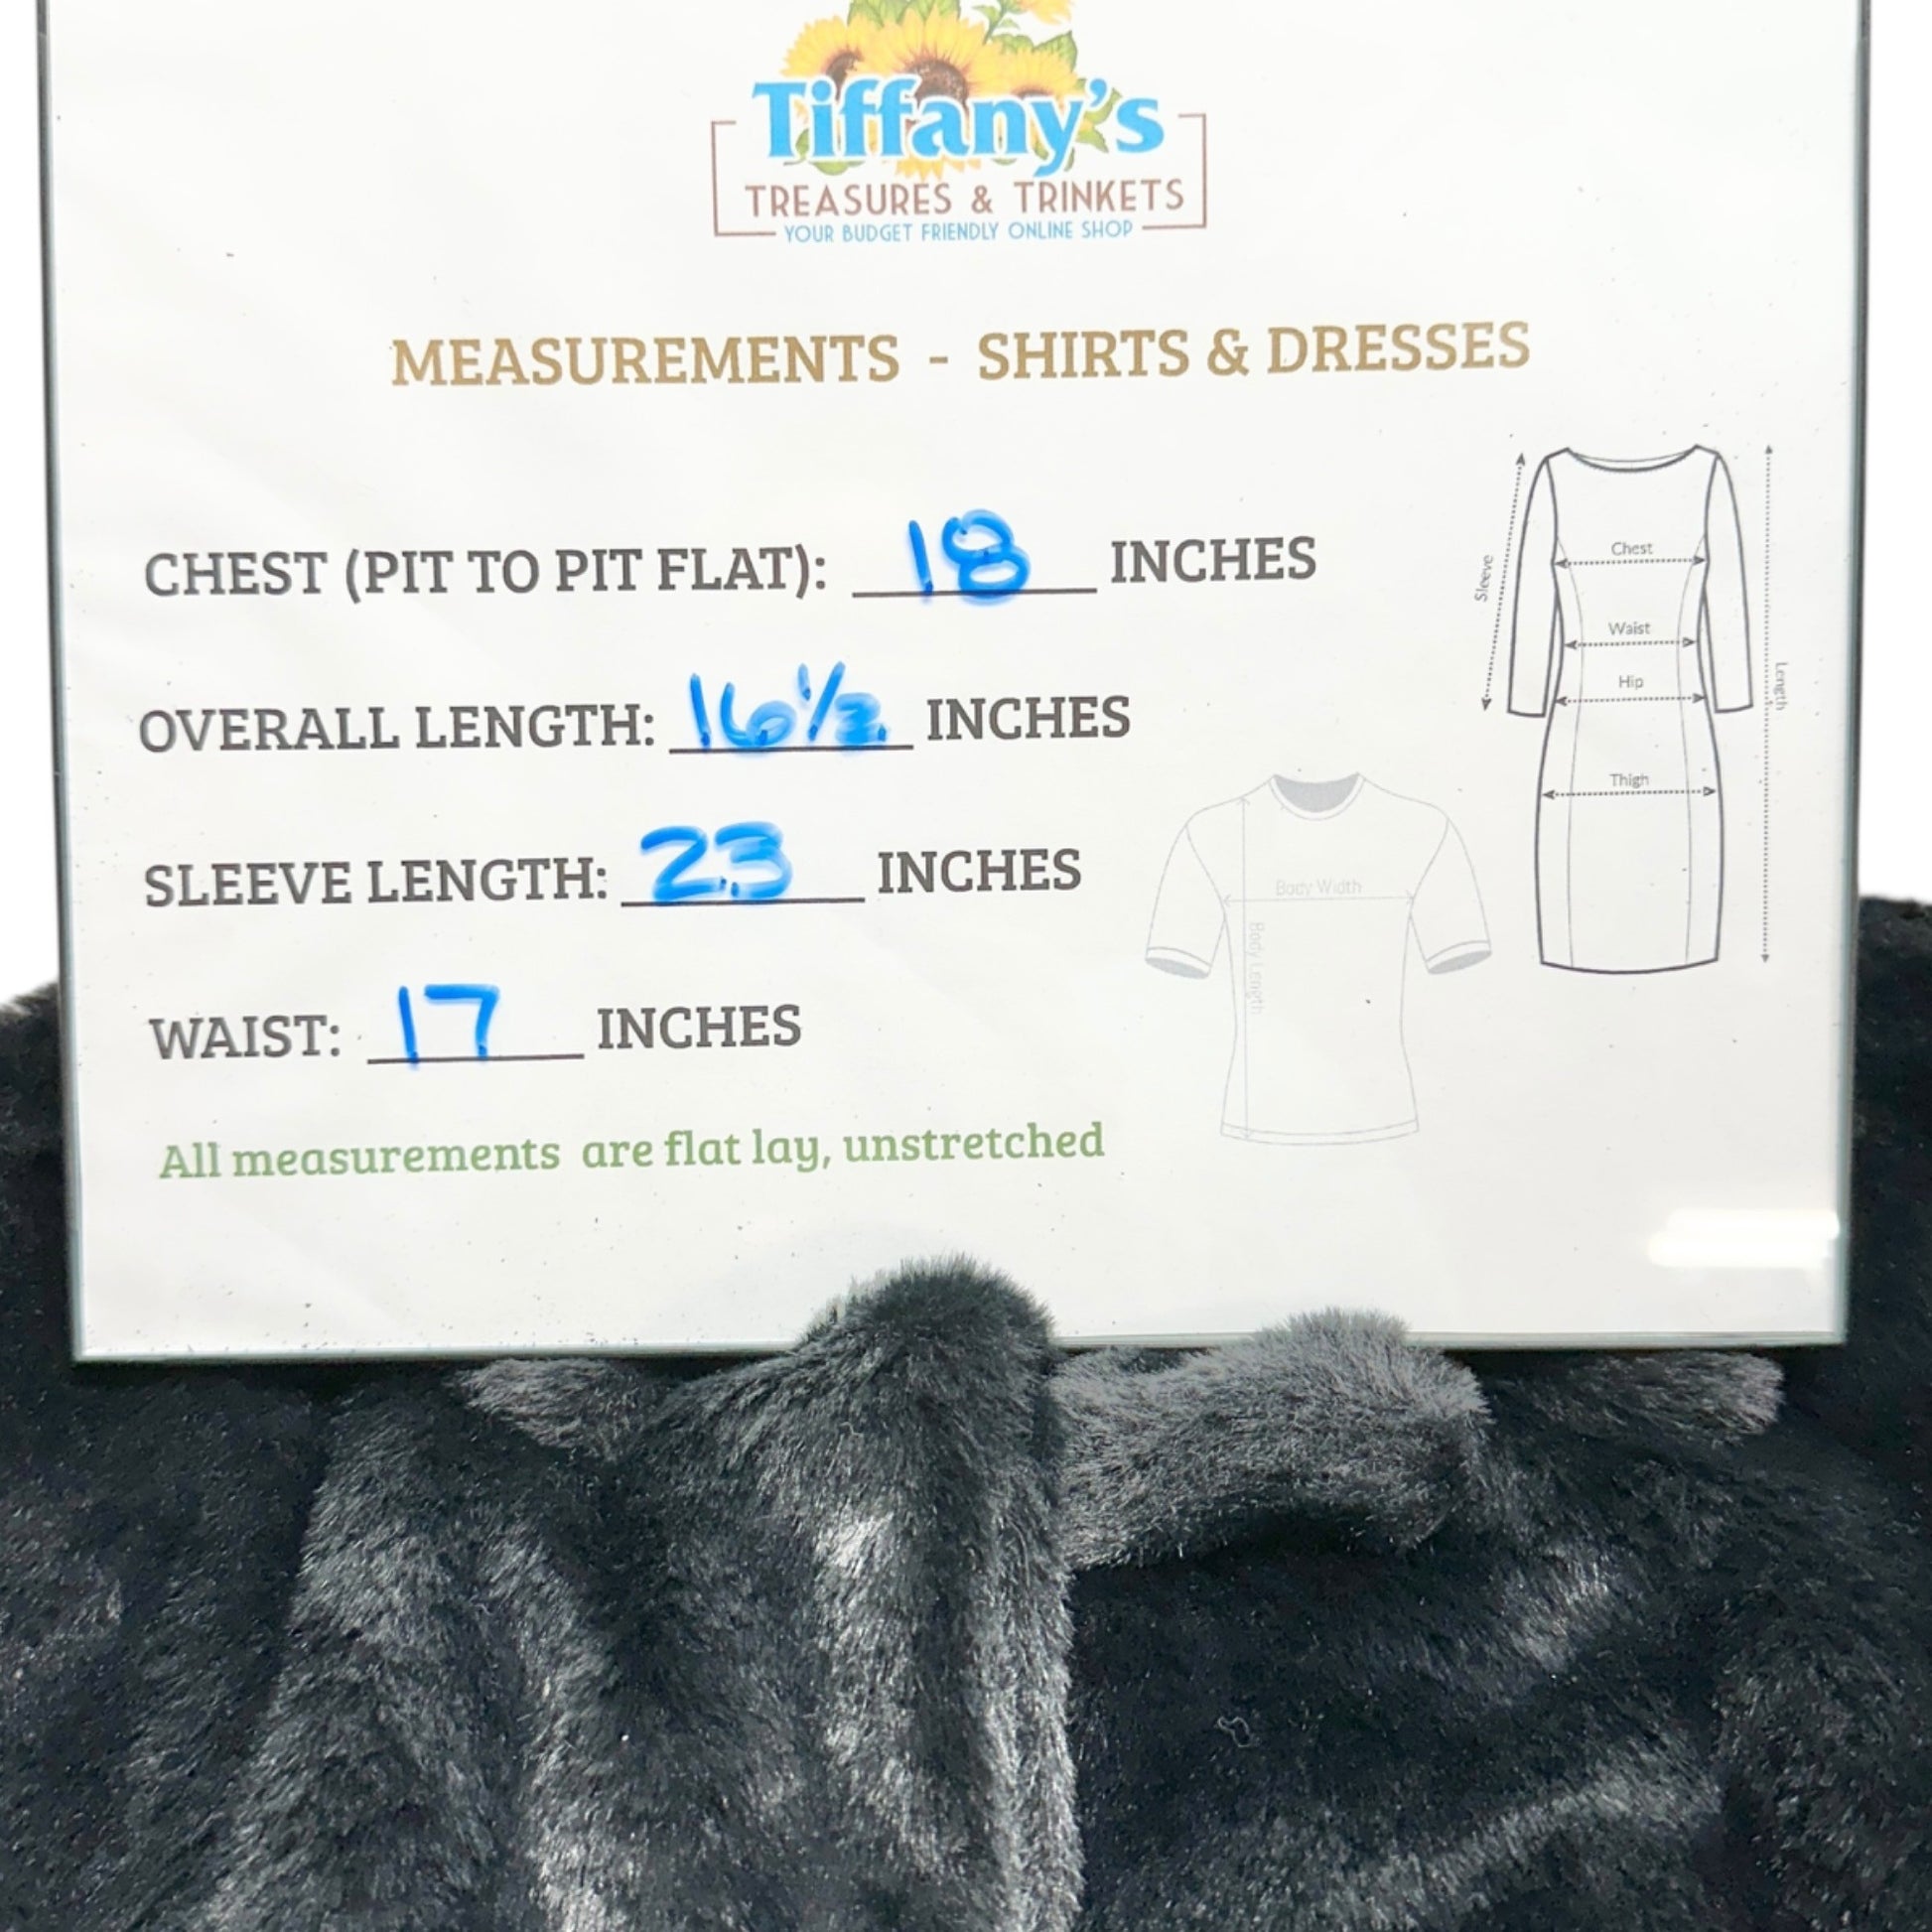 Tiffany's
TREASURES & TRINKETS
YOUR BUDGET FRIENDLY ONLINE SHOP
MEASUREMENTS - SHIRTS & DRESSES
CHEST (PIT TO PIT FLAT): 18 INCHES
OVERALL LENGTH: 16 1/2 INCHES
SLEEVE LENGTH: 23 INCHES
WAIST: 17 INCHES
All measurements are flat lay, unstretched
Sleeve
Chest
Waist
Hip
Thigh
Length
Body Width
Body Length